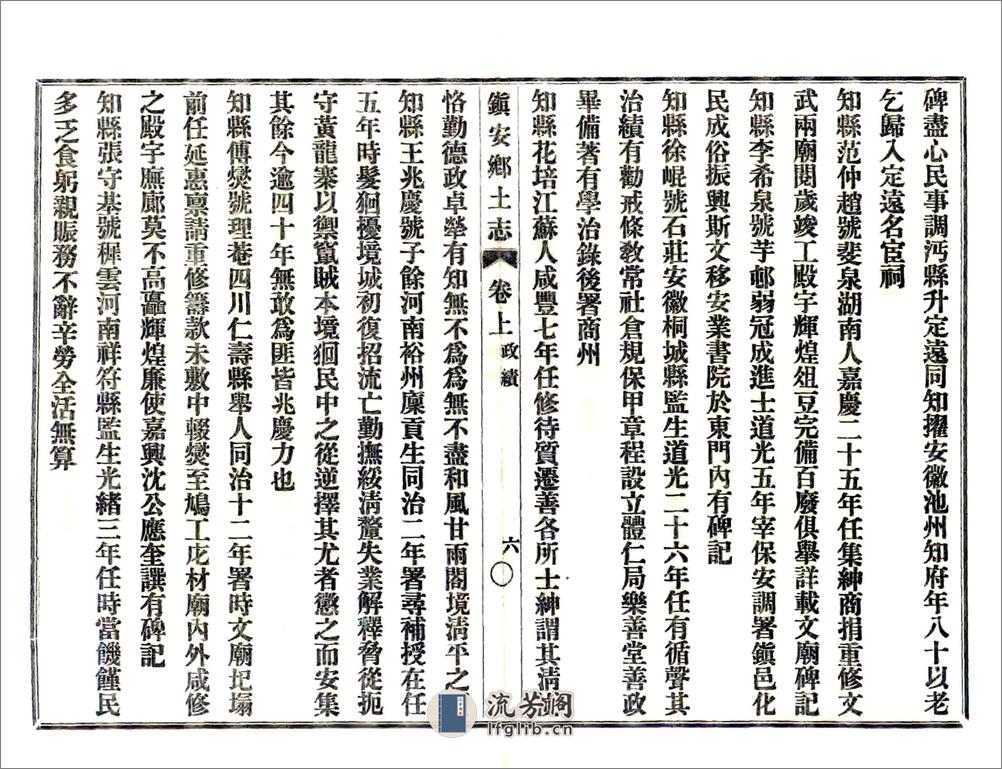 碑盡心民事調沔縣升定遠同知擢安徽池州知府年八十以老
乞歸入定遠名宦祠
知縣范仲趙號斐泉湖南人嘉慶二十五年任集紳商捐重修文
武兩廟閱歲竣工殿宇輝煌俎豆完備百廢俱舉詳載文廟碑記
知縣李希泉號芋邨弱冠成進士道光五年宰保安調署鎮邑化
民成俗振興斯文移安業書院於東門內有碑記
知縣徐崐號石莊安徽桐城縣監生道光二十六年任有循聲其
治績有勸戒條教常社倉規保甲章程設立體仁局樂善堂善政
畢備著有學治錄後署商州
知縣花培江蘇人咸豐七年任修待質遷善各所士紳謂其清
鎮安鄉土志 卷上 政績 六
恪勤德政卓犖有知無不為為無不盡和風甘雨閣境清平之
知縣王兆慶號子餘河南裕州廩貢生同治二年署尋補授在任
五年時髮狪擾境城初復招流亡勤撫綏清釐失業解釋脅從扼
守黃龍寨以禦竄賊本境狪民中之從逆擇其尤者懲之而安集
其餘今逾四十年無敢為匪皆兆慶力也
知縣傅燮號理菴四川仁壽縣舉人同治十二年署時文廟圮塌
前任延惠稟請重修籌款未敷中輟燮至鳩工庀材廟內外咸修
之殿宇廡廊莫不高矗輝煌廉使嘉興沈公應奎譔有碑記
知縣張守基號穉雲河南祥符縣監生光緒三年任時當饑饉民
多乏食躬親賑務不辭辛勞全活無算
流芳閣
lfglib.cn